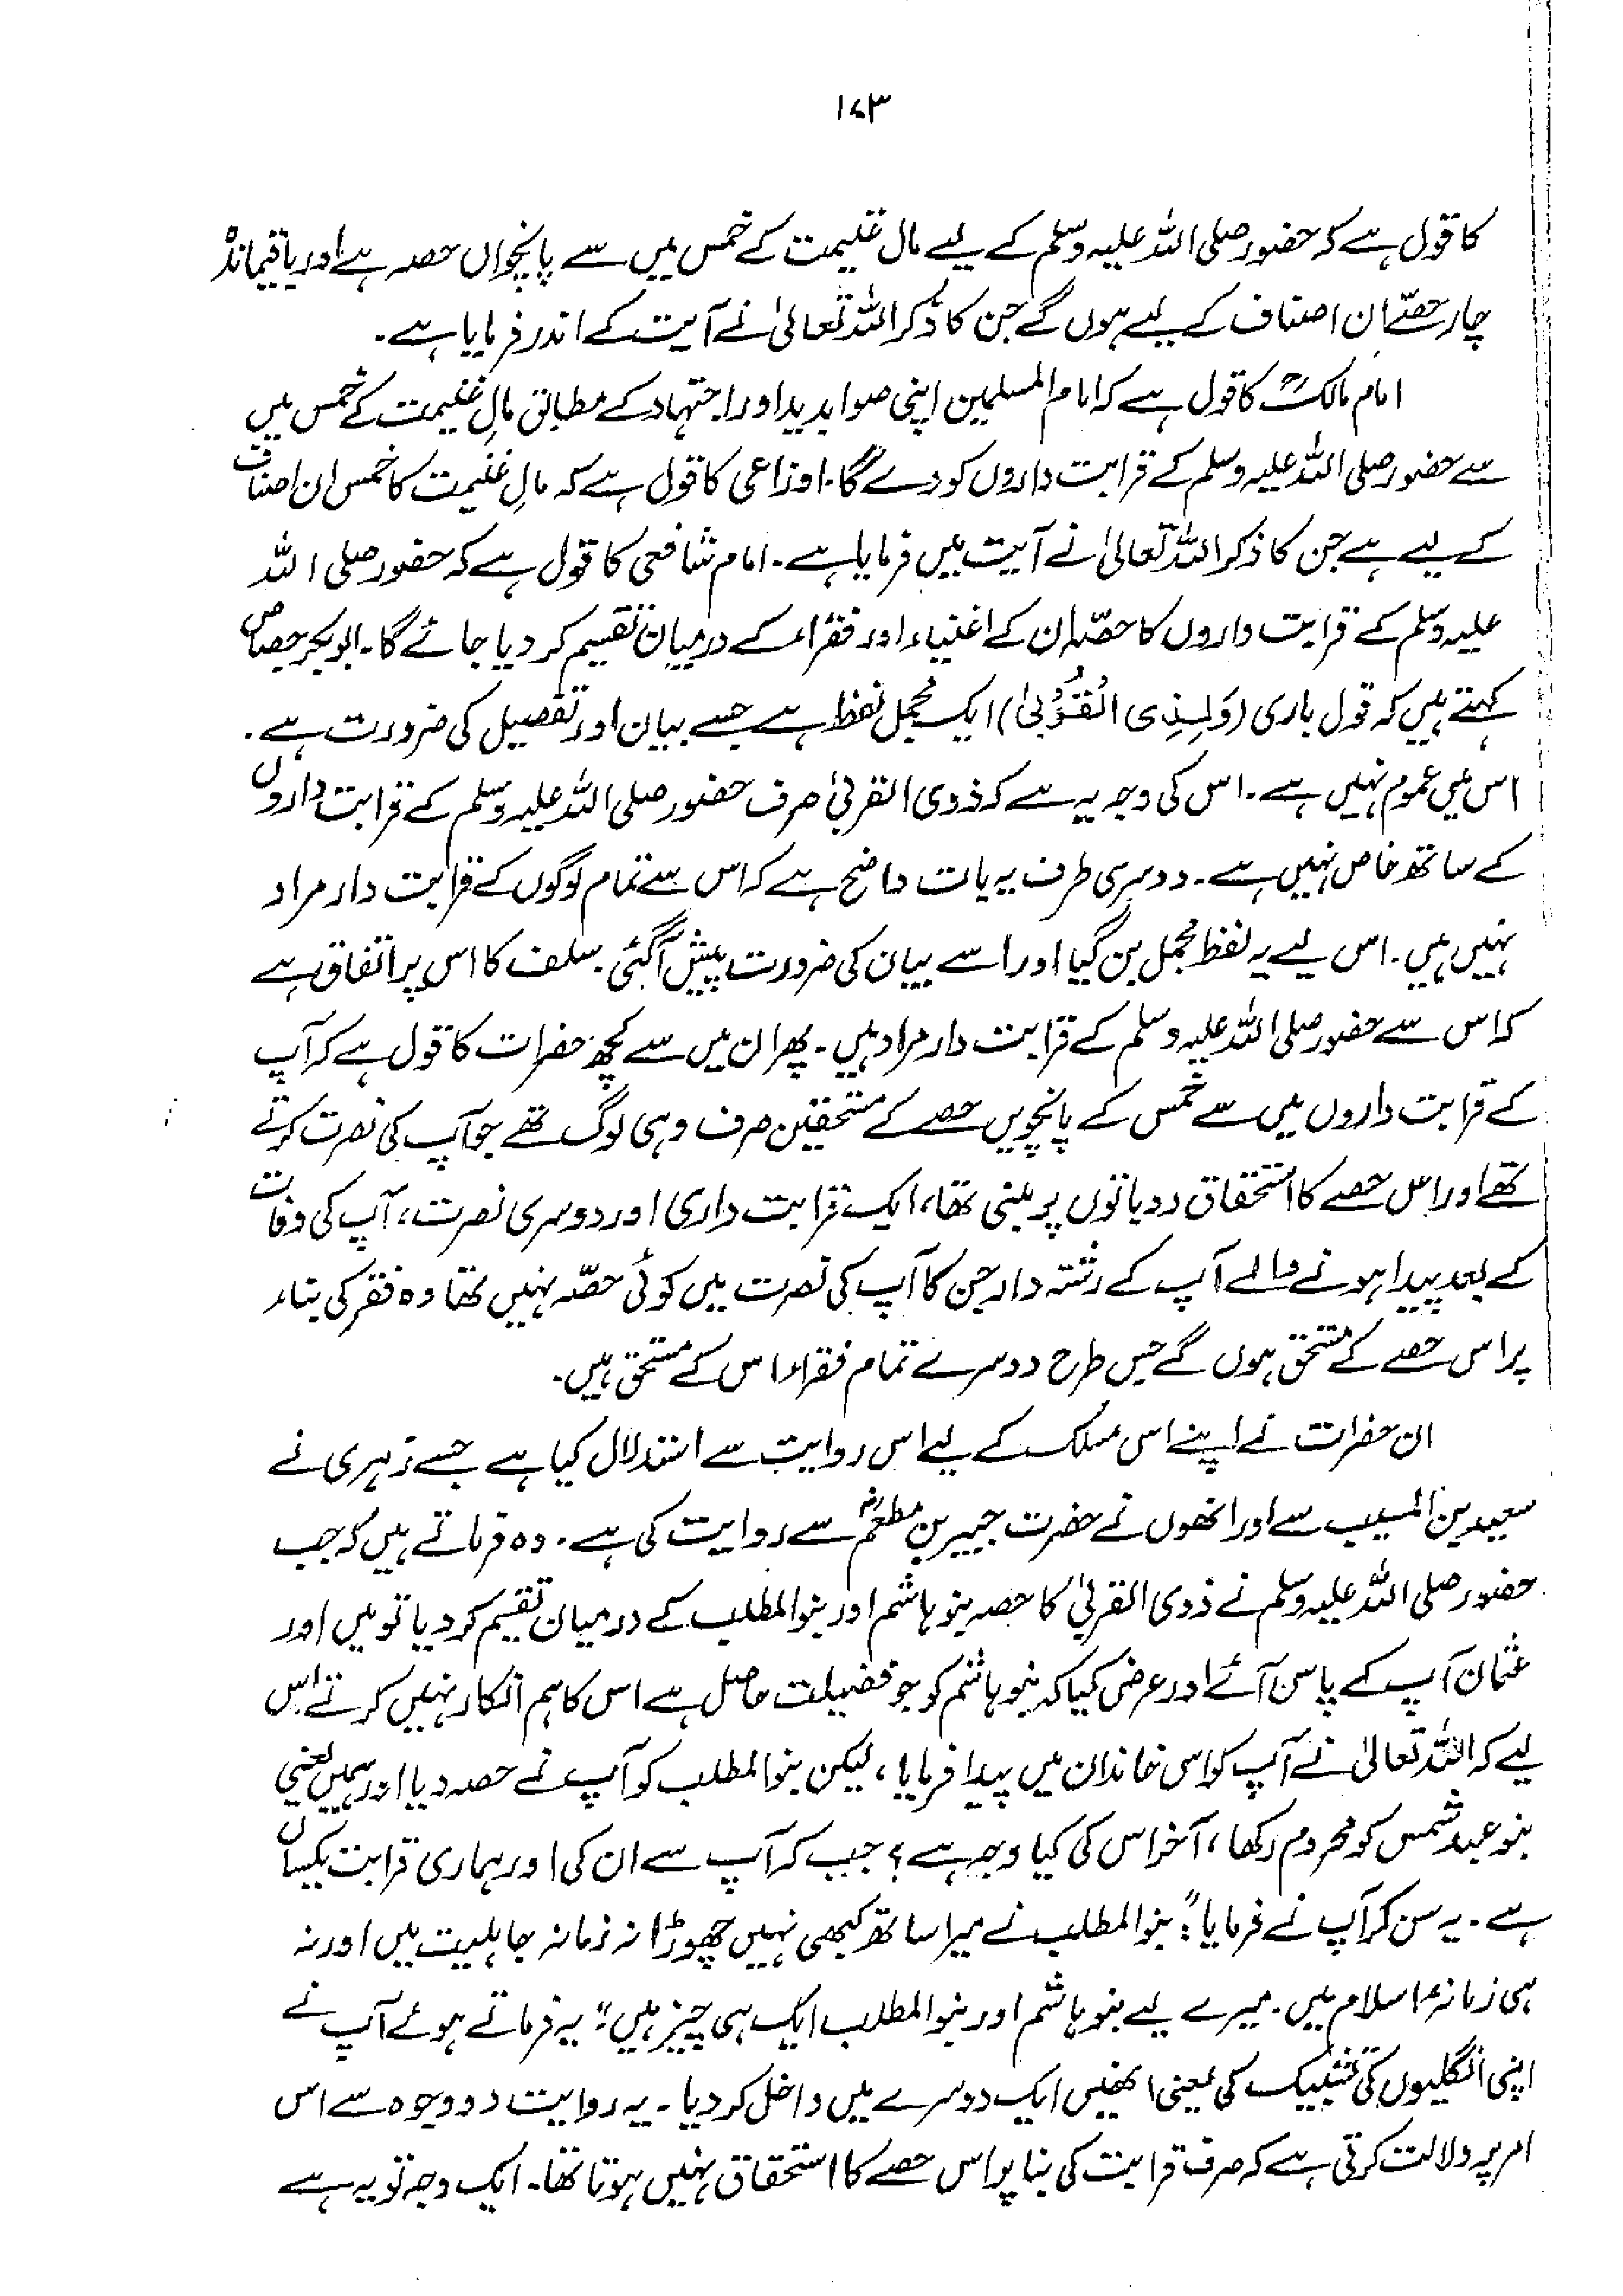 ۱۷۳
کا قول ہے کہ حضور صلی اللہ علیہ وسلم کے لیے مال غنیمت کے خمس میں سے پانچواں حصہ ہے اور باقیماندہ
چار حصّے ان اصناف کے لیے ہوں گے جن کا ذکر اللہ تعالیٰ نے آیت کے اندر فرمایا ہے۔
امام مالکؒ کا قول ہے کہ امام المسلمین اپنی صوابدید اور اجتہاد کے مطابق مالِ غنیمت کے خمس میں
سے حضور صلی اللہ علیہ وسلم کے قرابت داروں کو دے گا۔ اوزاعی کا قول ہے کہ مالِ غنیمت کا خمس ان اصناف
کے لیے ہے جن کا ذکر اللہ تعالیٰ نے آیت میں فرمایا ہے۔ امام شافعی کا قول ہے کہ حضور صلی اللہ
علیہ وسلم کے قرابت داروں کا حصّہ ان کے اغنیاء اور فقراء کے درمیان تقسیم کر دیا جائے گا۔ ابوبکر جصاص
کہتے ہیں کہ قول باری (وَلِذِی الْقُرْبیٰ) ایک مجمل لفظ ہے جسے بیان اور تفصیل کی ضرورت ہے۔
اس میں عموم نہیں ہے۔ اس کی وجہ یہ ہے کہ ذوی القربیٰ صرف حضور صلی اللہ علیہ وسلم کے قرابت داروں
کے ساتھ خاص نہیں ہے۔ دوسری طرف یہ بات واضح ہے کہ اس سے تمام لوگوں کے قرابت دار مراد
نہیں ہیں۔ اس لیے یہ لفظ مجمل بن گیا اور اسے بیان کی ضرورت پیش آگئی۔ سلف کا اس پر اتفاق ہے
کہ اس سے حضور صلی اللہ علیہ وسلم کے قرابت دار مراد ہیں۔ پھر ان میں سے کچھ حضرات کا قول ہے کہ آپ
کے قرابت داروں میں سے خمس کے پانچویں حصے کے مستحقین صرف وہی لوگ تھے جو آپ کی نصرت کرتے
تھے اور اس حصے کا استحقاق دو باتوں پر مبنی تھا، ایک قرابت داری اور دوسری نصرت، آپ کی وفات
کے بعد پیدا ہونے والے آپ کے رشتہ دار جن کا آپ کی نصرت میں کوئی حصّہ نہیں تھا وہ فقر کی بناء
پر اس حصے کے مستحق ہوں گے جس طرح دوسرے تمام فقراء اس کے مستحق ہیں۔
ان حضرات نے اپنے اس مسلک کے لیے اس روایت سے استدلال کیا ہے جسے زہری نے
سعید بن المسیب سے اور انھوں نے حضرت جبیر بن مطعمؓ سے روایت کی ہے۔ وہ فرماتے ہیں کہ جب
حضور صلی اللہ علیہ وسلم نے ذوی القربیٰ کا حصہ بنو ہاشم اور بنو المطلب کے درمیان تقسیم کر دیا تو میں اور
عثمان آپ کے پاس آئے اور عرض کیا کہ بنو ہاشم کو جو فضیلت حاصل ہے اس کا ہم انکار نہیں کرتے اس
لیے کہ اللہ تعالیٰ نے آپ کو اسی خاندان میں پیدا فرمایا، لیکن بنو المطلب کو آپ نے حصہ دیا اور ہمیں یعنی
بنو عبد شمس کو محروم رکھا، آخر اس کی کیا وجہ ہے؟ جب کہ آپ سے ان کی اور ہماری قرابت یکساں
ہے۔ یہ سن کر آپ نے فرمایا: "بنو المطلب نے میرا ساتھ کبھی نہیں چھوڑا نہ زمانہ جاہلیت میں اور نہ
ہی زمانۂ اسلام میں۔ میرے لیے بنو ہاشم اور بنو المطلب ایک ہی چیز ہیں" یہ فرماتے ہوئے آپ نے
اپنی انگلیوں کی تشبیک کی یعنی انھیں ایک دوسرے میں داخل کر دیا۔ یہ روایت دو وجوہ سے اس
امر پر دلالت کرتی ہے کہ صرف قرابت کی بنا پر اس حصے کا استحقاق نہیں ہوتا تھا۔ ایک وجہ تو یہ ہے